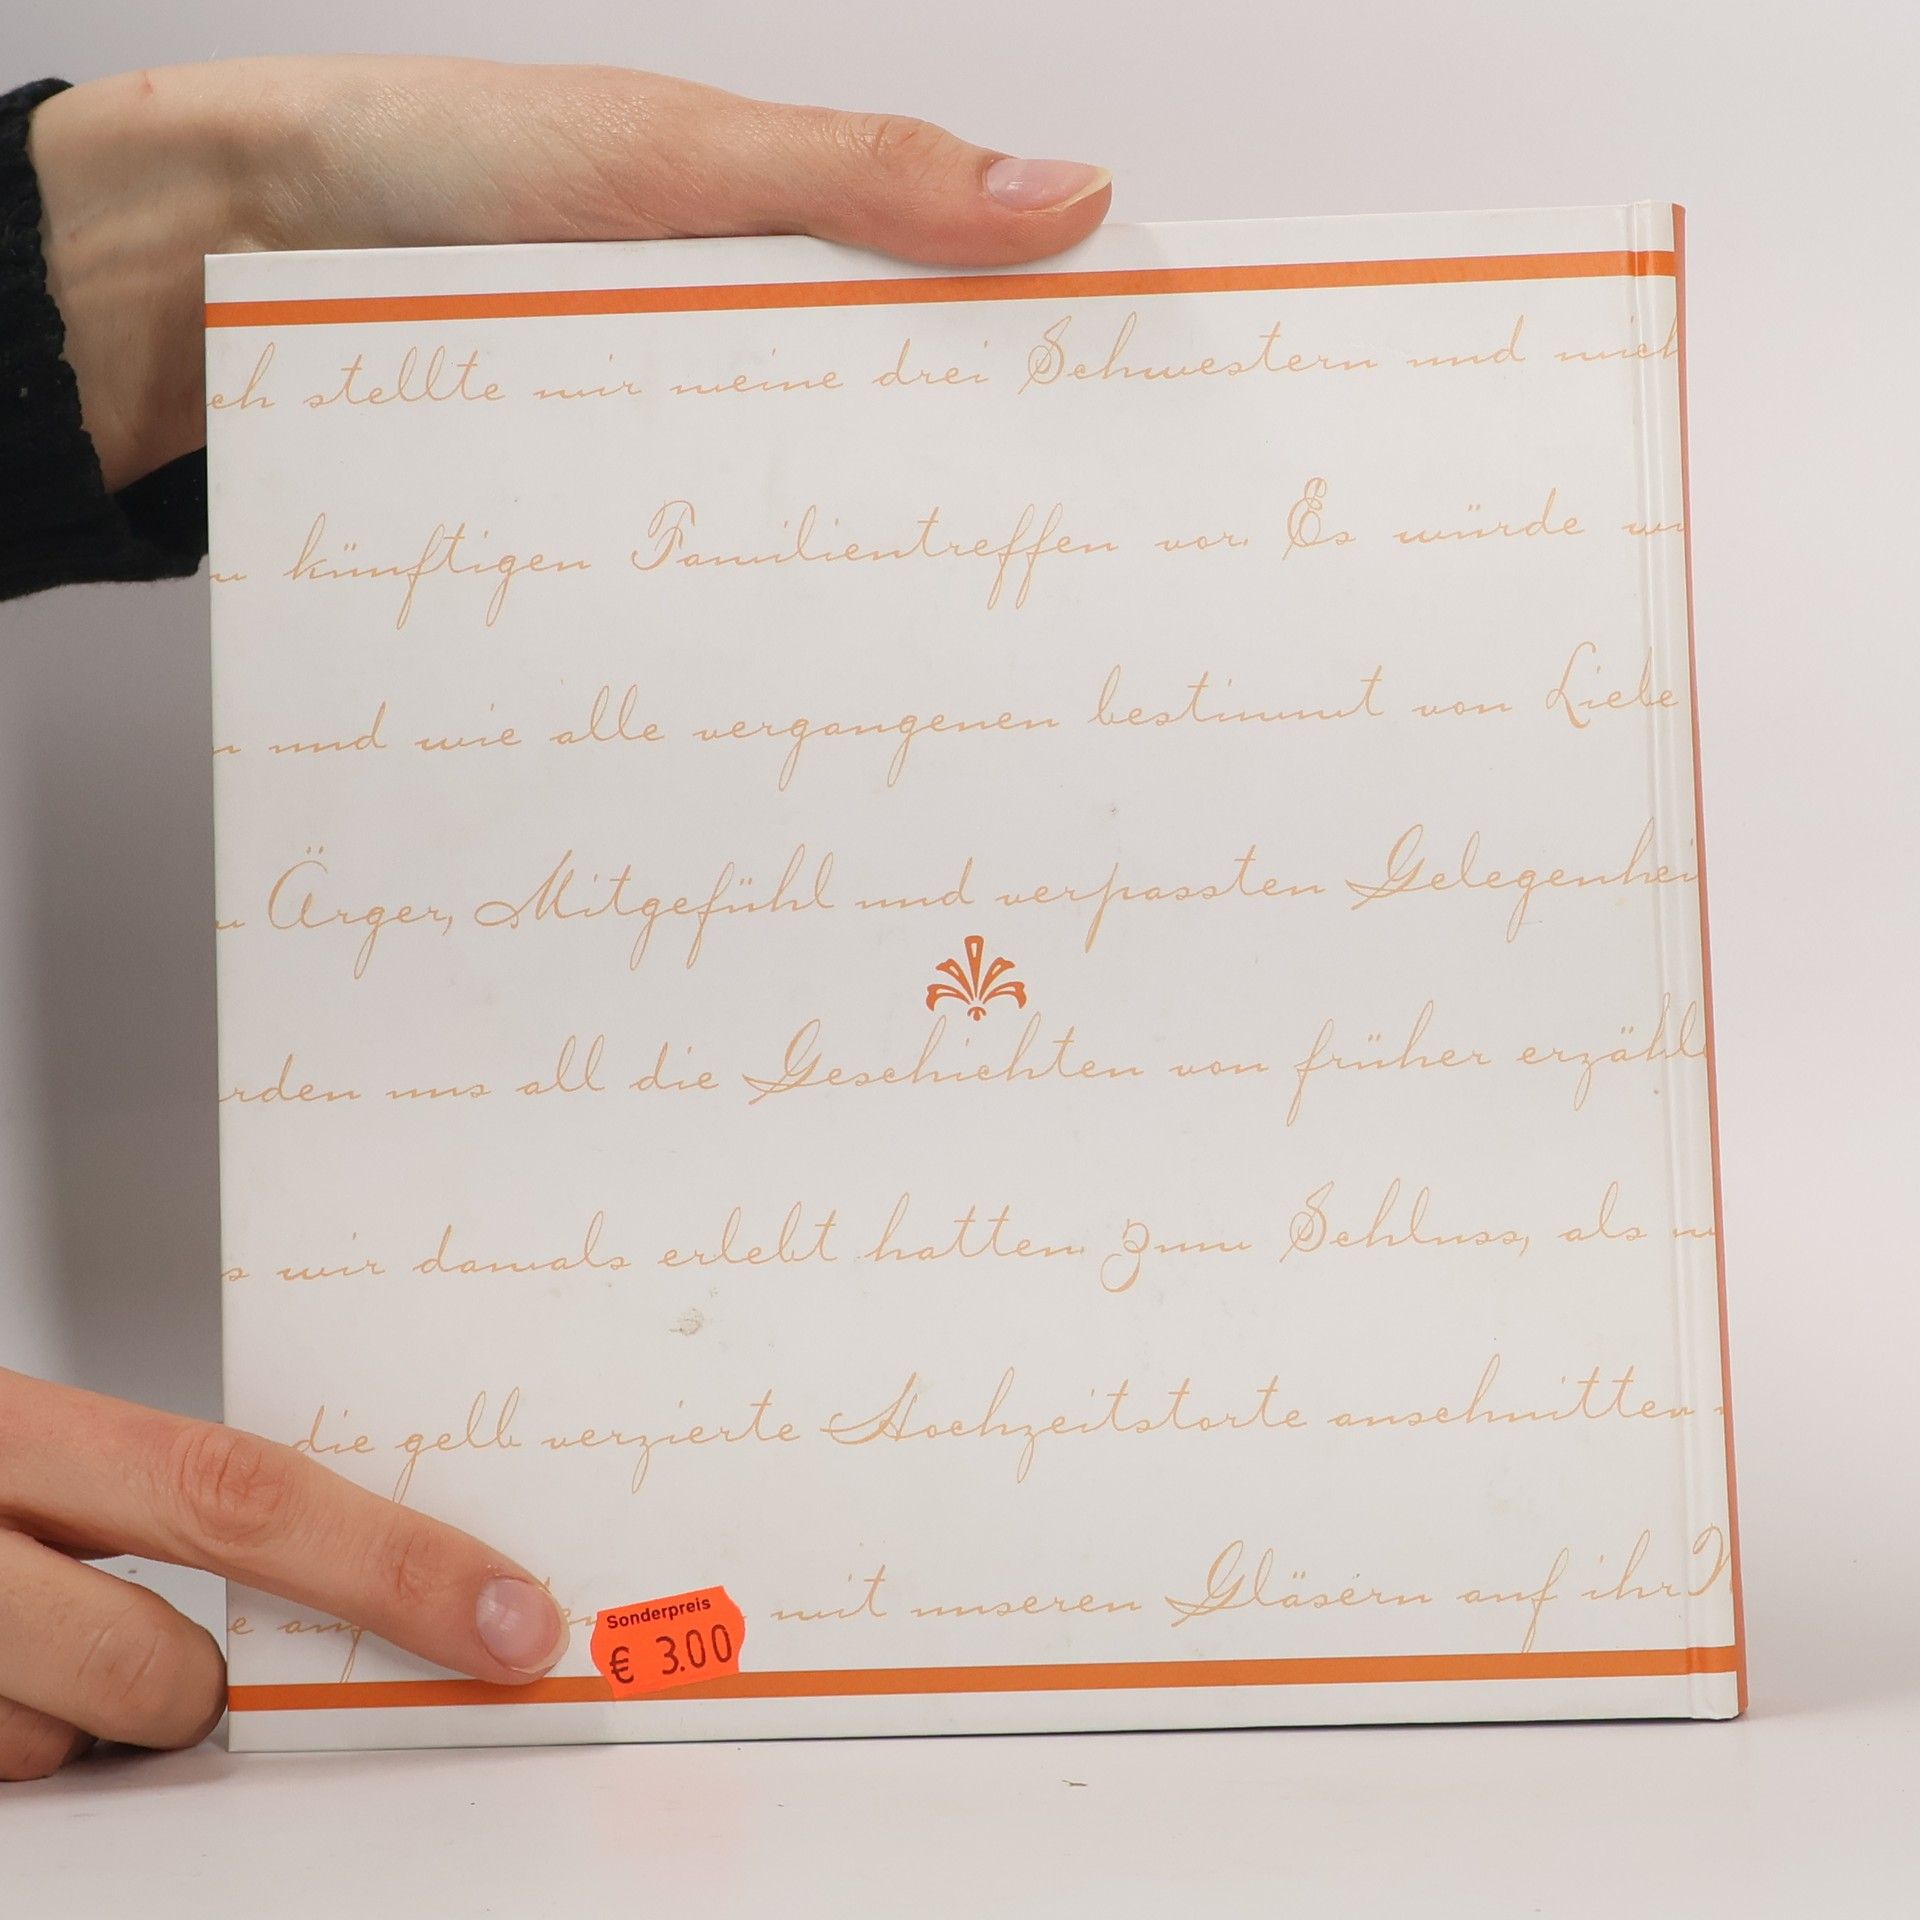 ch stellte mir meine drei Schwestern und mich
künftigen Familientreffen vor. Es würde
und wie alle vergangenen bestimmt von Liebe
Ärger, Mitgefühl und verpassten Gelegenhei
rden uns all die Geschichten von früher erzähl
s wir damals erlebt hatten. Zum Schluss, als
die gelb verzierte Hochzeitstorte anschnitten
e auf mit unseren Gläsern auf ihr
Sonderpreis
€ 3.00